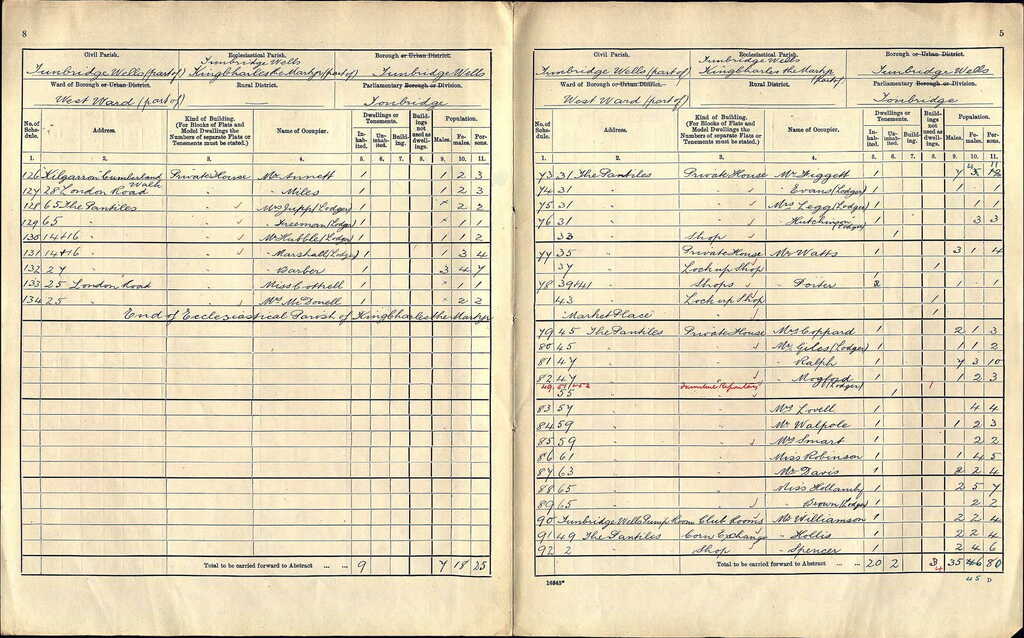 8
Civil Parish. Ecclesiastical Parish. Borough or Urban District.
Tunbridge Wells
Tunbridge Wells (part of) King Charles the Martyr (part of) Tunbridge Wells
Ward of Borough or Urban District. Rural District. Parliamentary Borough or Division.
West Ward (part of) — Tonbridge
No. of Schedule. Address. Kind of Building. (For Blocks of Flats and Model Dwellings the Numbers of separate Flats or Tenements must be stated.) Name of Occupier. Dwellings or Tenements. Inhabited. Uninhabited. Building. Buildings not used as dwellings. Population. Males. Females. Persons.
1. 2. 3. 4. 5. 6. 7. 8. 9. 10. 11.
126 Kilgarron Cumberland Walk Private House Mr Annett 1 1 2 3
127 28 London Road " " Miles 1 1 2 3
128 65 The Pantiles " Mrs Jupp (Lodger) 1 × 2 2
129 65 " " " Freeman (Lodger) 1 × 1 1
130 14+16 " " Mr Hubble (Lodger) 1 1 1 2
131 14+16 " " " Marshall (Lodger) 1 1 3 4
132 27 " " " Barber 1 3 4 7
133 25 London Road " Miss Cottrell 1 " 1 1
134 25 " " Mrs McDonell 1 " 2 2
End of Ecclesiastical Parish of King Charles the Martyr
Total to be carried forward to Abstract ... ... 9 7 18 25
5
Civil Parish. Ecclesiastical Parish. Borough or Urban District.
Tunbridge Wells
Tunbridge Wells (part of) King Charles the Martyr (part of) Tunbridge Wells
Ward of Borough or Urban District. Rural District. Parliamentary Borough or Division.
West Ward (part of) Tonbridge
No. of Schedule. Address. Kind of Building. (For Blocks of Flats and Model Dwellings the Numbers of separate Flats or Tenements must be stated.) Name of Occupier. Dwellings or Tenements. Inhabited. Uninhabited. Building. Buildings not used as dwellings. Population. Males. Females. Persons.
1. 2. 3. 4. 5. 6. 7. 8. 9. 10. 11.
4 11
73 31 The Pantiles Private House Mr 1 7
74 31 " " " Evans (Lodger) 1 1 " 1
75 31 " " Mrs Legg (Lodger) 1 1 1
76 31 " " " Hutchinson (Lodger) 1 3 3
33 " Shop 1
77 35 " Private House Mr Watts 1 3 1 4
37 " Lock up Shop 1
78 39+41 " Shops " Porter 2 1 " 1
43 " Lock up Shop 1
Market Place " 1
79 45 The Pantiles Private House Mrs Coppard 1 2 1 3
80 45 " " Mr Giles (Lodger) 1 1 1 2
81 47 " " " Ralph 1 7 3 10
82 47 " " " Mogford (Lodger) 1 1 2 3
Furniture Repository 1
55 " " 1
83 57 " " Mrs Lovell 1 4 4
84 59 " " Mr Walpole 1 1 2 3
85 59 " " Mrs Smart 1 2 2
86 61 " " Miss Robinson 1 1 4 5
87 63 " " Mr Davis 1 2 2 4
88 65 " " Miss Hollamby 1 2 5 7
89 65 " " " Brown (Lodger) 1 2 2
90 Tunbridge Wells Pump Room Club Rooms Mr Williamson 1 2 2 4
91 49 The Pantiles Corn Exchange " Hollis 1 2 2 4
92 2 " Shop " Spencer 1 2 4 6
Total to be carried forward to Abstract ... ... 20 2 3 35 46 80
4
16843* 45 D